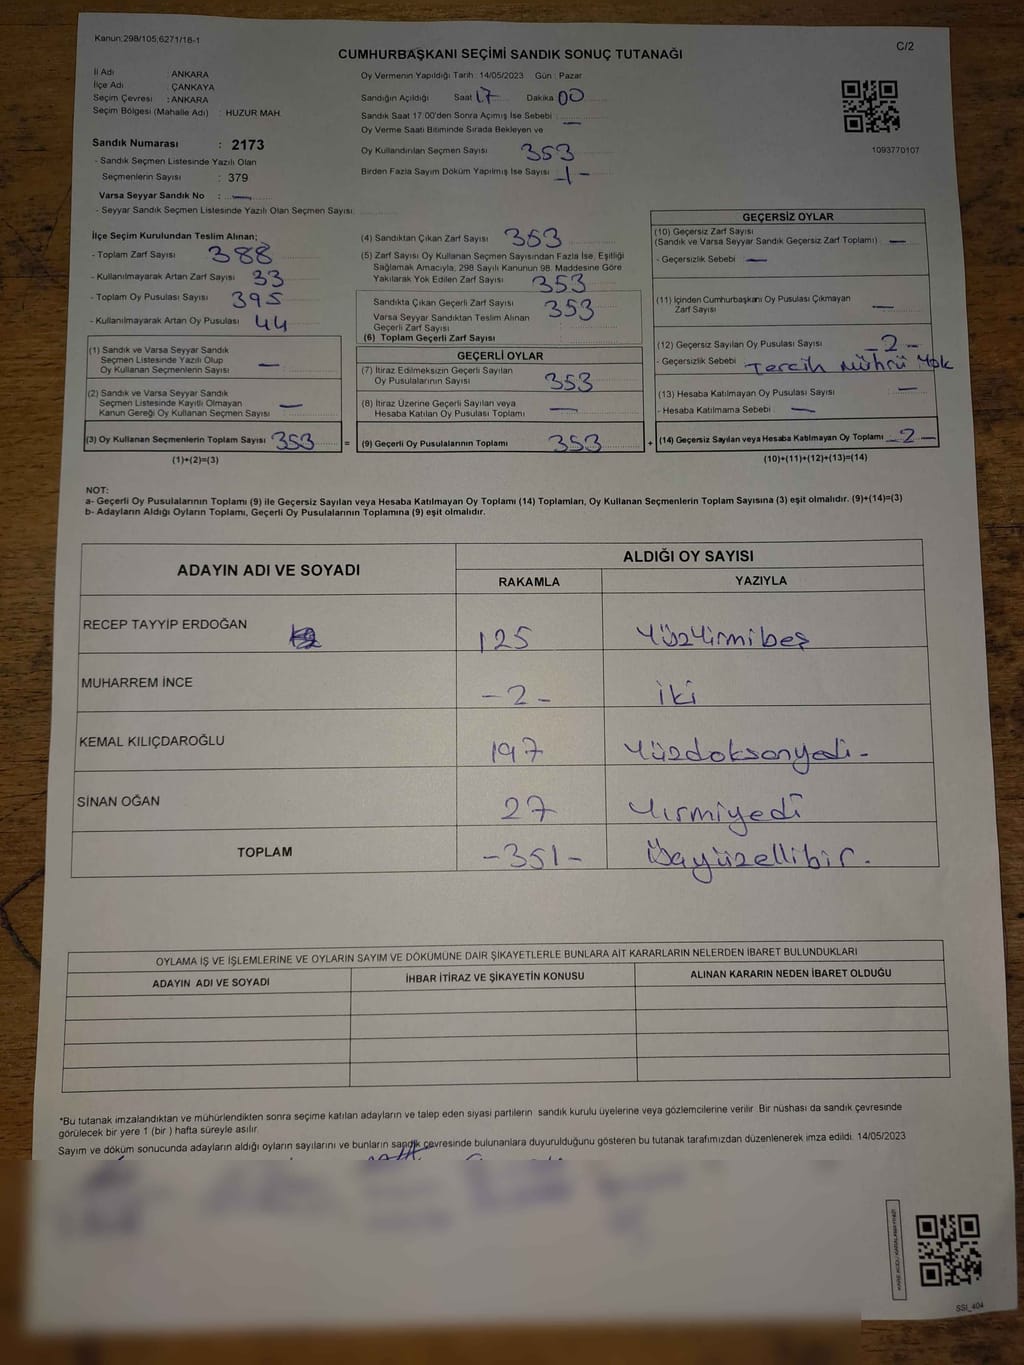 Kanun:298/105;6271/16-1
C/2
CUMHURBAŞKANI SEÇİMİ SANDIK SONUÇ TUTANAĞI
İl Adı : ANKARA
İlçe Adı : ÇANKAYA
Seçim Çevresi : ANKARA
Seçim Bölgesi (Mahalle Adı) : HUZUR MAH
Sandık Numarası : 2173
- Sandık Seçmen Listesinde Yazılı Olan
Seçmenlerin Sayısı : 379
Varsa Seyyar Sandık No : —
- Seyyar Sandık Seçmen Listesinde Yazılı Olan Seçmen Sayısı:
Oy Vermenin Yapıldığı Tarih : 14/05/2023 Gün : Pazar
Sandığın Açıldığı Saat 17 Dakika 00
Sandık Saat 17.00'den Sonra Açımış İse Sebebi : —
Oy Verme Saati Bitiminde Sırada Bekleyen ve
Oy Kullandırılan Seçmen Sayısı 353
Birden Fazla Sayım Döküm Yapılmış İse Sayısı -1-
1093770107
İlçe Seçim Kurulundan Teslim Alınan;
- Toplam Zarf Sayısı 388
- Kullanılmayarak Artan Zarf Sayısı 33
- Toplam Oy Pusulası Sayısı 395
- Kullanılmayarak Artan Oy Pusulası 44
(1) Sandık ve Varsa Seyyar Sandık
Seçmen Listesinde Yazılı Olup
Oy Kullanan Seçmenlerin Sayısı —
(2) Sandık ve Varsa Seyyar Sandık
Seçmen Listesinde Kayıtlı Olmayan
Kanun Gereği Oy Kullanan Seçmen Sayısı —
(3) Oy Kullanan Seçmenlerin Toplam Sayısı 353
(1)+(2)=(3)
=
(4) Sandıktan Çıkan Zarf Sayısı 353
(5) Zarf Sayısı Oy Kullanan Seçmen Sayısından Fazla İse, Eşitliği
Sağlamak Amacıyla, 298 Sayılı Kanunun 98. Maddesine Göre
Yakılarak Yok Edilen Zarf Sayısı 353
Sandıkta Çıkan Geçerli Zarf Sayısı 353
Varsa Seyyar Sandıktan Teslim Alınan
Geçerli Zarf Sayısı :
(6) Toplam Geçerli Zarf Sayısı :
GEÇERLİ OYLAR
(7) İtiraz Edilmeksizin Geçerli Sayılan
Oy Pusulalarının Sayısı 353
(8) İtiraz Üzerine Geçerli Sayılan veya
Hesaba Katılan Oy Pusulası Toplamı —
(9) Geçerli Oy Pusulalarının Toplamı 353
+
GEÇERSİZ OYLAR
(10) Geçersiz Zarf Sayısı
(Sandık ve Varsa Seyyar Sandık Geçersiz Zarf Toplamı) —
- Geçersizlik Sebebi —
(11) İçinden Cumhurbaşkanı Oy Pusulası Çıkmayan
Zarf Sayısı —
(12) Geçersiz Sayılan Oy Pusulası Sayısı -2-
- Geçersizlik Sebebi Tercih Mührü Yok
(13) Hesaba Katılmayan Oy Pusulası Sayısı —
- Hesaba Katılmama Sebebi —
(14) Geçersiz Sayılan veya Hesaba Katılmayan Oy Toplamı -2-
(10)+(11)+(12)+(13)=(14)
NOT:
a- Geçerli Oy Pusulalarının Toplamı (9) ile Geçersiz Sayılan veya Hesaba Katılmayan Oy Toplamı (14) Toplamları, Oy Kullanan Seçmenlerin Toplam Sayısına (3) eşit olmalıdır. (9)+(14)=(3)
b- Adayların Aldığı Oyların Toplamı, Geçerli Oy Pusulalarının Toplamına (9) eşit olmalıdır.
ADAYIN ADI VE SOYADI
ALDIĞI OY SAYISI
RAKAMLA YAZIYLA
RECEP TAYYİP ERDOĞAN 125 Yüzyirmibeş
MUHARREM İNCE -2- iki
KEMAL KILIÇDAROĞLU 197 Yüzdoksanyedi-
SİNAN OĞAN 27 Yirmiyedi
TOPLAM -351- Üçyüzellibir.
OYLAMA İŞ VE İŞLEMLERİNE VE OYLARIN SAYIM VE DÖKÜMÜNE DAİR ŞİKAYETLERLE BUNLARA AİT KARARLARIN NELERDEN İBARET BULUNDUKLARI
ADAYIN ADI VE SOYADI İHBAR İTİRAZ VE ŞİKAYETİN KONUSU ALINAN KARARIN NEDEN İBARET OLDUĞU
*Bu tutanak imzalandıktan ve mühürlendikten sonra seçime katılan adayların ve talep eden siyasi partilerin sandık kurulu üyelerine veya gözlemcilerine verilir. Bir nüshası da sandık çevresinde
görülecek bir yere 1 (bir ) hafta süreyle asılır.
Sayım ve döküm sonucunda adayların aldığı oyların sayılarını ve bunların sandık çevresinde bulunanlara duyurulduğunu gösteren bu tutanak tarafımızdan düzenlenerek imza edildi. 14/05/2023
SSI_404